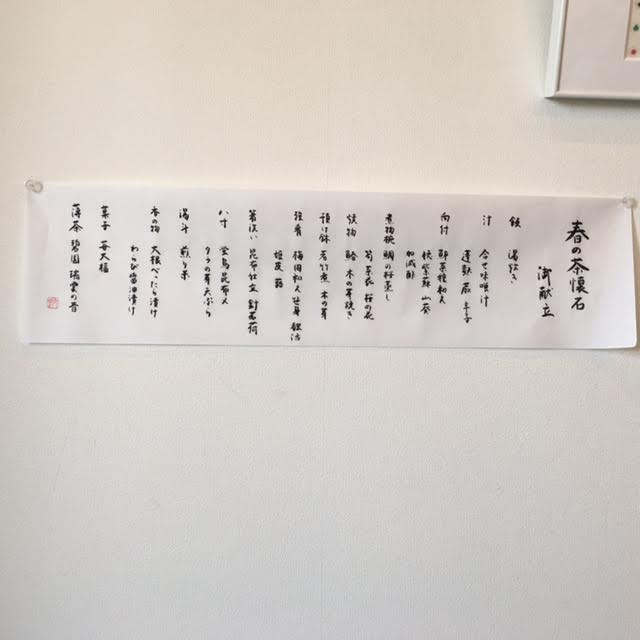 春の茶懐石
御献立
飯 湯炊き
汁 合せ味噌汁
蓬麩 辛子
向付 鯛菜種和え
山葵
加減酢
煮物椀 鯛の桜蒸し
桜の花
焼物 鮭 木の芽焼き
預け鉢 若竹煮 木の芽
強肴 梅肉和え
箸洗い 昆布仕立 針茗荷
八寸
タラの芽天ぷら
湯斗 煎り米
香の物 大根べったら漬け
わらび醤油漬け
菓子 苺大福
薄茶 碧園 瑞雲の昔